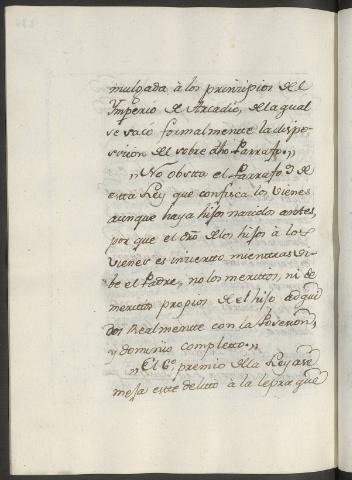 mulgada à los prinzipios del
Ymperio de Arcadio, de la qual
se sacó formalmente la dispo-
sizion del sobre dho Parrafo.,,
,, No obsta el Parrafo 3 de
esta Ley que confisca los vienes
aunque haya hijos nazidos antes,
por que el dro de los hijos à los
vienes es incierto mientras vi-
be el Padre, no los meritos, ni de
meritos propios del hijo adqui
dos Realmente con la Posesion,
y dominio completto.,,
,, El 6º, premio de la Ley ase
meja este delito à la lepra que